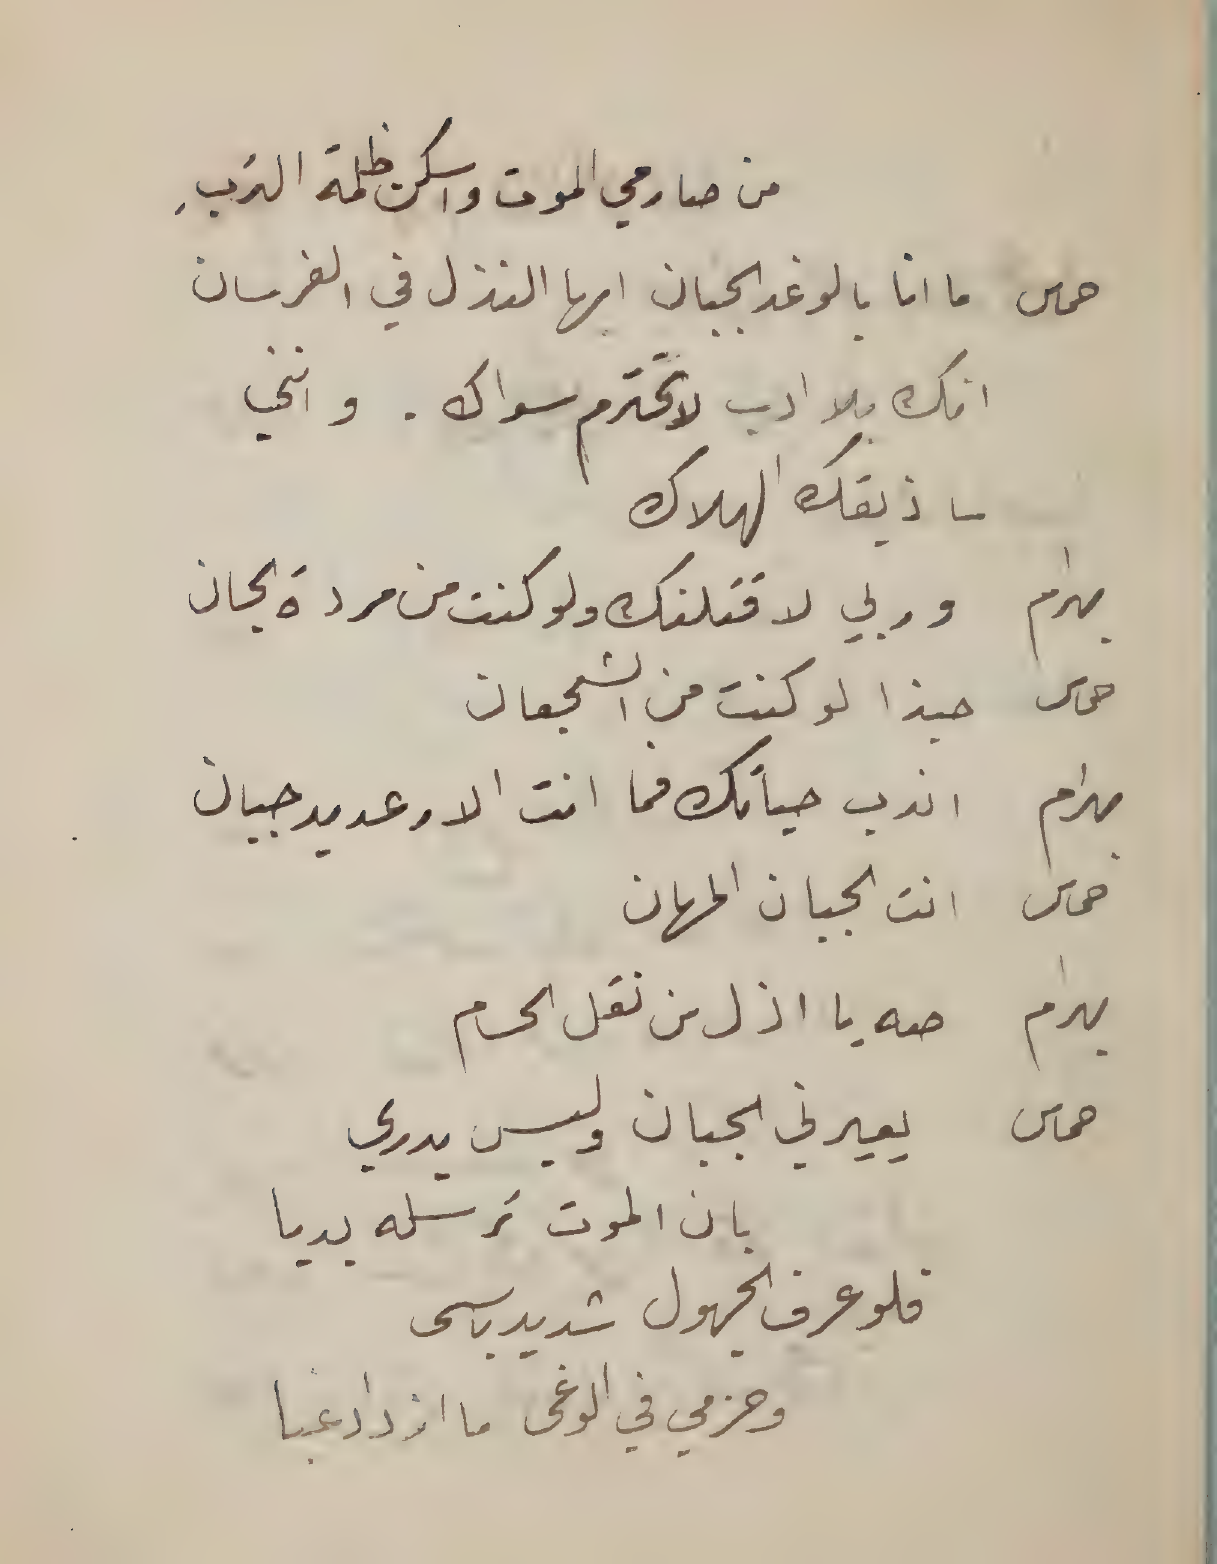 من صارمي الموت واسكن ظلمة التربِ
حماس ما انا بالوغد الجبان ايها النذل في الفرسان
انك بلا ادب لا تحترم سواك . وانني
ساذيقك الهلاك
بهرام وربي لاقتلنك ولو كنت من مردة الجان
حماس حبذا لو كنت من الشجعان
بهرام اندب حياتك فما انت الا رعديد جبان
حماس انت الجبان المهان
بهرام صه يا اذل من نقل الحسام
حماس يعيرني الجبان وليس يدري
بان الموت ترسله يديا
فلو عرف الجهول شديد باسى
وحزمي في الوغى ما ازداد غيا